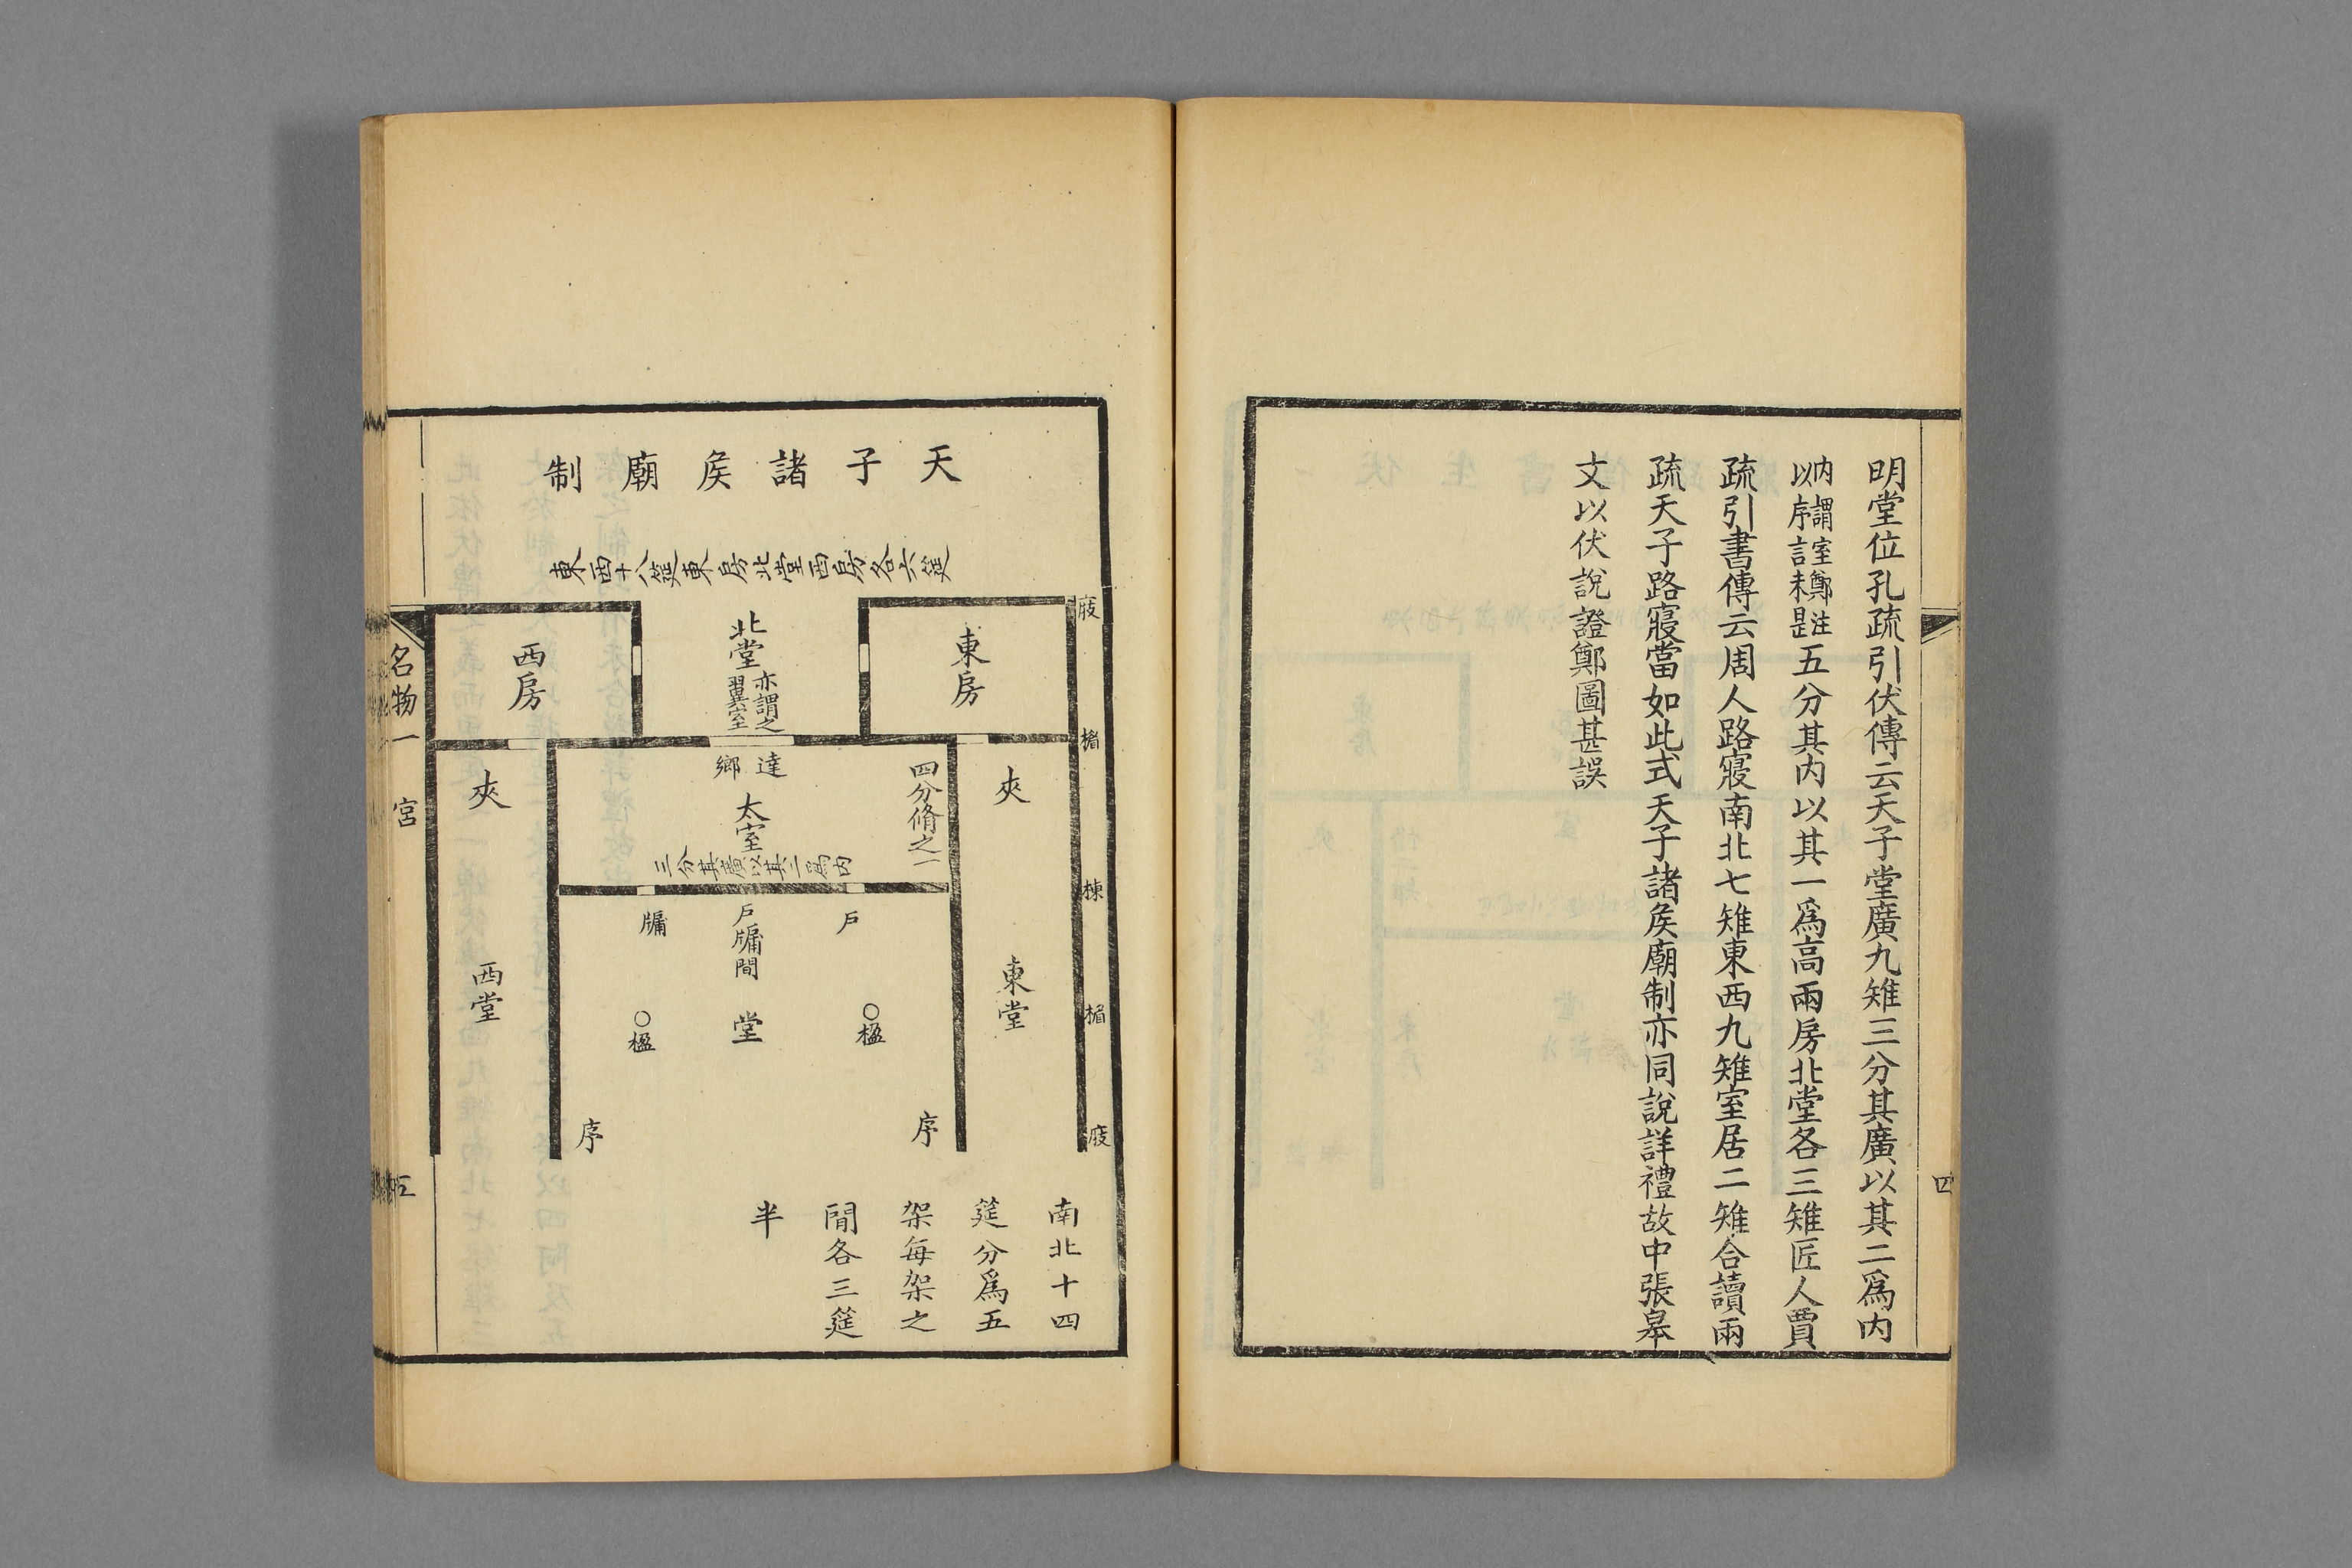 明堂位孔疏引伏傳云天子堂廣九雉三分其廣以其二爲内
内謂室鄭注
以序言未是
五分其内以其一爲高兩房北堂各三雉匠人賈
疏引書傳云周人路寢南北七雉東西九雉室居二雉合讀兩
疏天子路寢當如此式天子諸矦廟制亦同說詳禮故中張皋
文以伏說證鄭圖甚誤
四
天子諸矦廟制
東西十八筵東房北堂西房各六筵
庪
楣
棟
楣
庪
東房
北堂
亦謂之
翼室
西房
夾
達鄉
四分脩之一
太室
三分其廣以其二爲内
夾
戶
戶牖間
牖
東堂
楹
堂
楹
西堂
序
序
南北十四
筵分爲五
架每架之
閒各三筵
半
名物一
宮
五